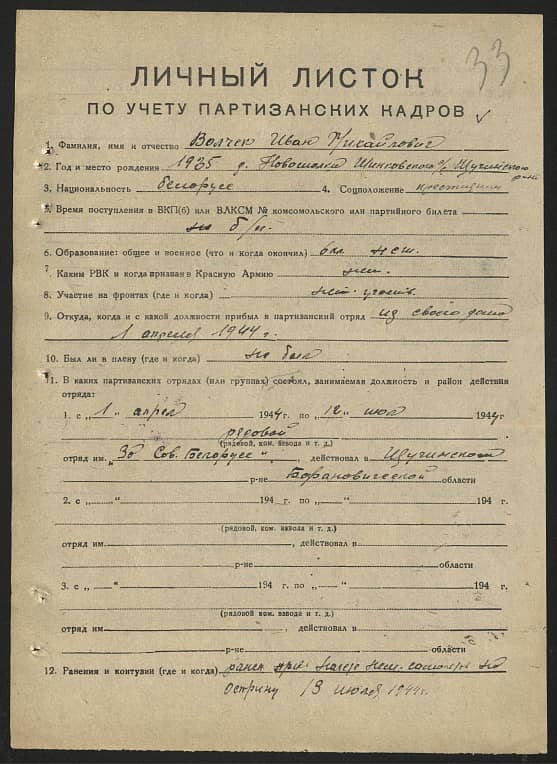 33
ЛИЧНЫЙ ЛИСТОК
ПО УЧЕТУ ПАРТИЗАНСКИХ КАДРОВ
1. Фамилия, имя и отчество Волчек Иван Михайлович
2. Год и место рождения 1935 д. Новоселки Щучинского
р-на
3. Национальность белорусс 4. Соцположение крестьянин
5. Время поступления в ВКП(б) или ВЛКСМ № комсомольского или партийного билета
б/п.
6. Образование: общее и военное (что и когда окончил) 6 кл. нет.
7. Каким РВК и когда призван в Красную Армию нет.
8. Участие на фронтах (где и когда) нет
9. Откуда, когда и с какой должности прибыл в партизанский отряд из своего дома
1 апреля 1944 г.
10. Был ли в плену (где и когда) не был
11. В каких партизанских отрядах (или группах) состоял, занимаемая должность и район действия
отряда:
1. с „1„ апрел 1944 г. по „12„ июл 1944 г
рядовой
(рядовой, ком. взвода и т. д.)
отряд им. „За Сов. Белорусс", действовал в Щучинском
р-не Барановической области
2. с „ “ 194 г. по „ “ 194 г.
(рядовой, ком. взвода и т. д.)
отряд им. , действовал в
р-не области
3. с „ “ 194 г. по „ “ 194 г.
(рядовой ком. взвода и т. д.)
отряд им. , действовал в
р-не области
12. Ранения и контузии (где и когда) ранен при налете нем. на
Острину 13 июля 1944 г.